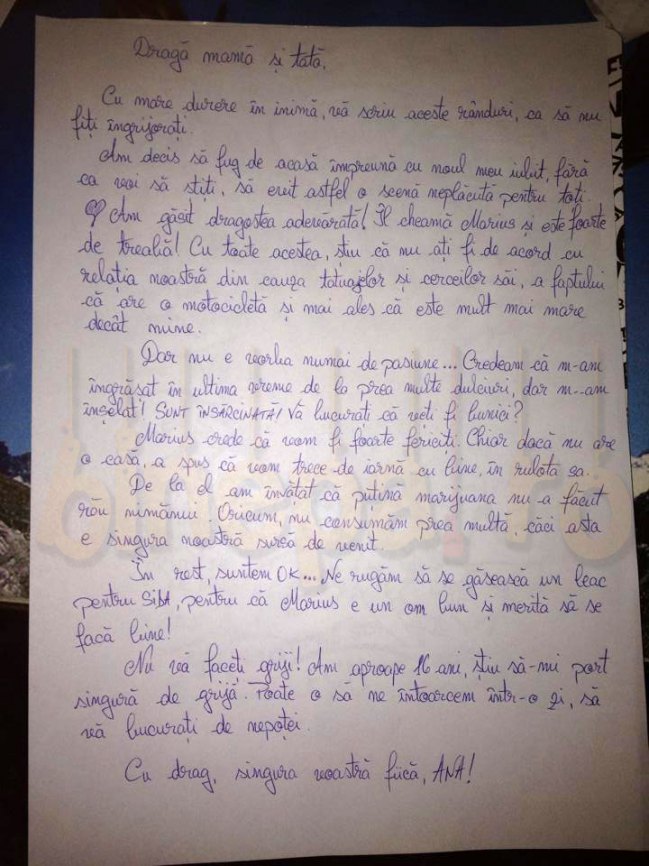 Dragă mamă și tată,
Cu mare durere în inimă, vă scriu aceste rânduri, ca să nu
fiți îngrijorați.
Am decis să fug de acasă împreună cu noul meu iubit, fără
ca voi să știți, să evit astfel o scenă neplăcută pentru toți.
Am găsit dragostea adevărată! Îl cheamă Marius și este foarte
de treabă! Cu toate acestea, știu că nu ați fi de acord cu
relația noastră din cauza tatuajelor și cerceilor săi, a faptului
că are o motocicletă și mai ales că este mult mai mare
decât mine.
Dar nu e vorba numai de pasiune... Credeam că m-am
îngrășat în ultima vreme de la prea multe dulciuri, dar m-am
înșelat! SUNT ÎNSĂRCINATĂ! Vă bucurați că veți fi bunici?
Marius crede că vom fi foarte fericiți. Chiar dacă nu are
o casă, a spus că vom trece de iarnă cu bine, în rulota sa.
De la el am învățat că puțină marijuana nu a făcut
rău nimănui. Oricum, nu consumăm prea multă, căci asta
e singura noastră sursă de venit.
În rest, suntem OK... Ne rugăm să se găsească un leac
pentru SIDA, pentru că Marius e un om bun și merită să se
facă bine!
Nu vă faceți griji! Am aproape 16 ani, știu să-mi port
singură de grijă. Poate o să ne întoarcem într-o zi, să
vă bucurați de nepoței.
Cu drag, singura voastră fiică, ANA!